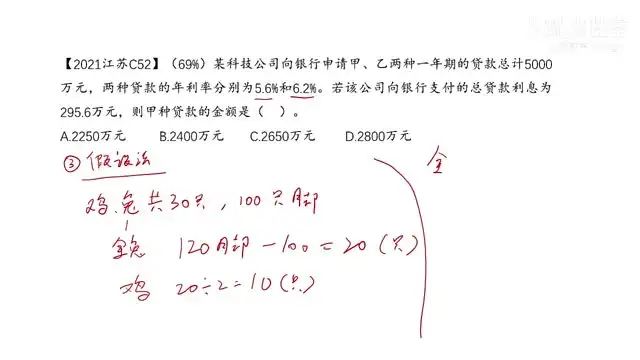 【2021江苏C52】（69%）某科技公司向银行申请甲、乙两种一年期的贷款总计5000
万元，两种贷款的年利率分别为5.6%和6.2%。若该公司向银行支付的总贷款利息为
295.6万元，则甲种贷款的金额是（ ）。
A.2250万元 B.2400万元 C.2650万元 D.2800万元
③ 假设法
鸡、兔共30只，100只脚
全兔 120脚-100=20（只）
鸡 20÷2=10（只）
全